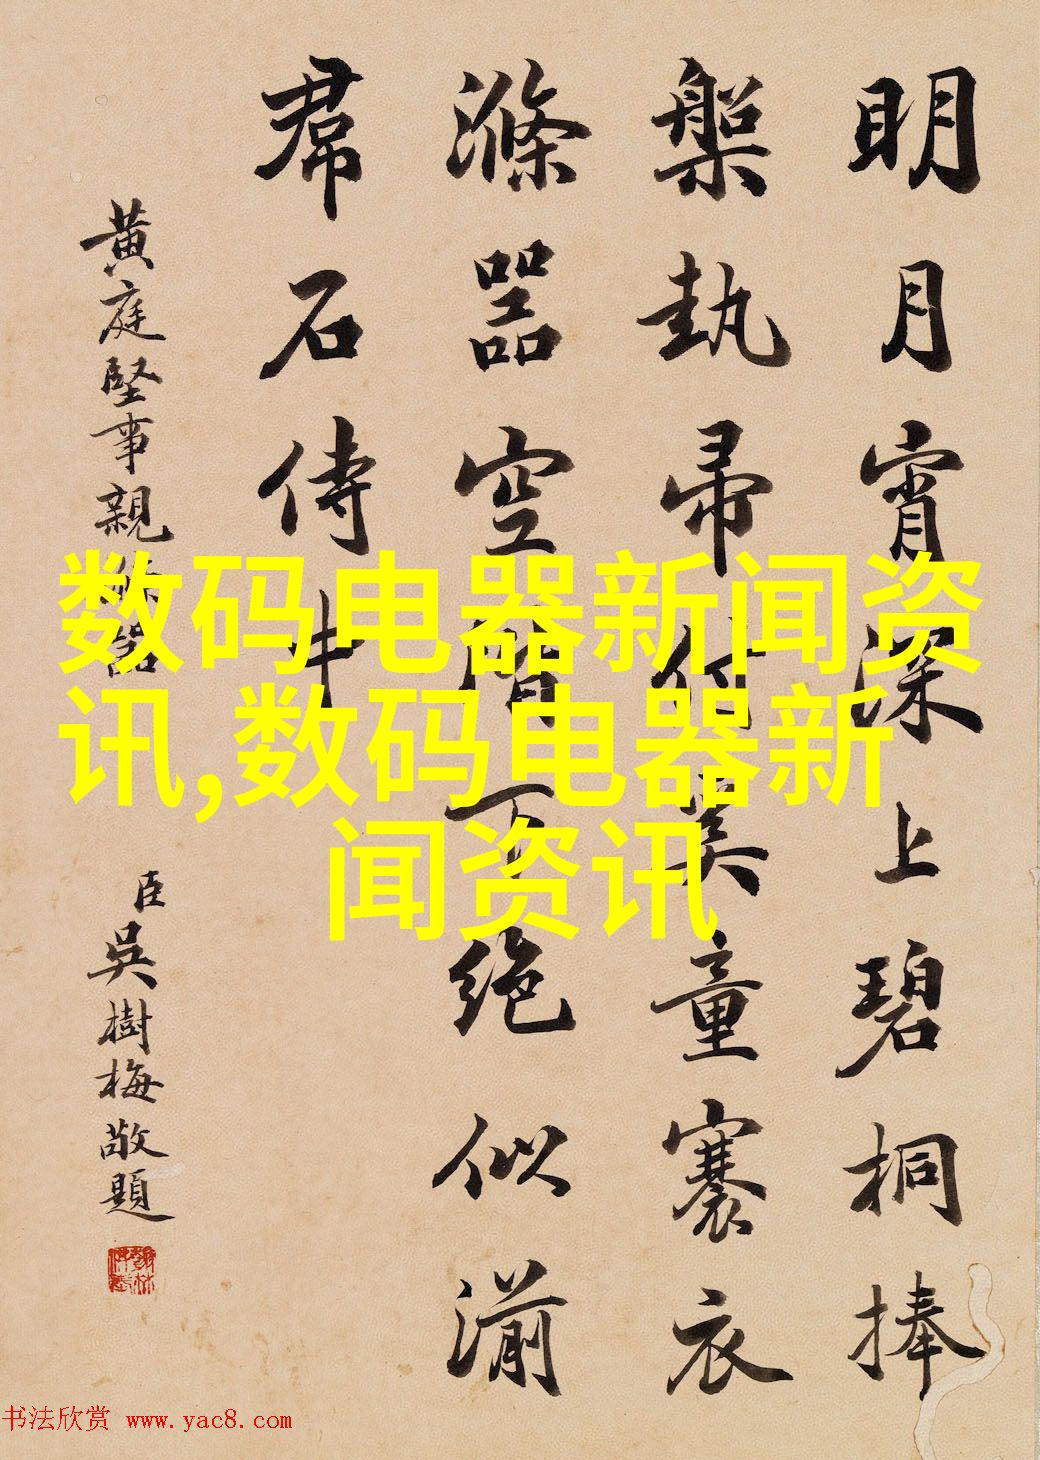 明月宵深上碧桐捧
槃執帚付奚童褰衣
滌器空階下絕似湔
帬石侍中
黄庭堅事親滌器
臣吳樹梅敬題
数码电器新闻资
讯,数码电器新
闻资讯
书法欣赏 www.yac8.com